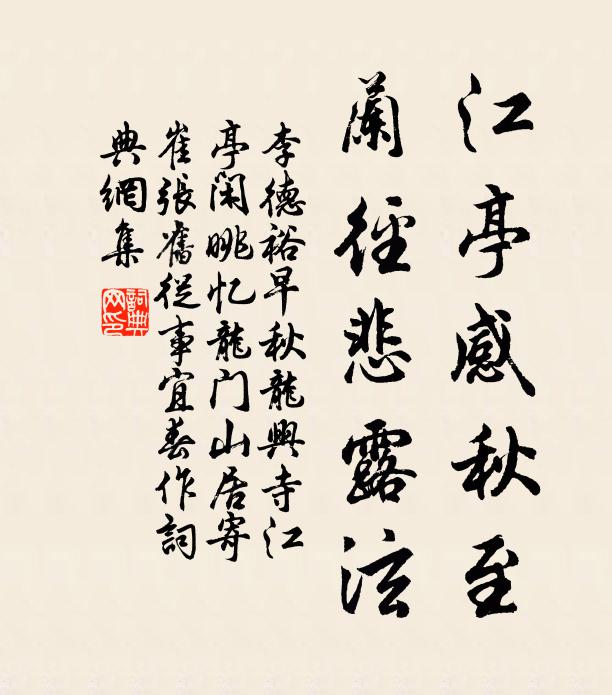 江亭感秋至
蘭徑悲露泫
李德裕早秋龍興寺江
亭闲眺忆龍门山居寄
崔張舊從事宜春作詞
典網集
詞典
网印